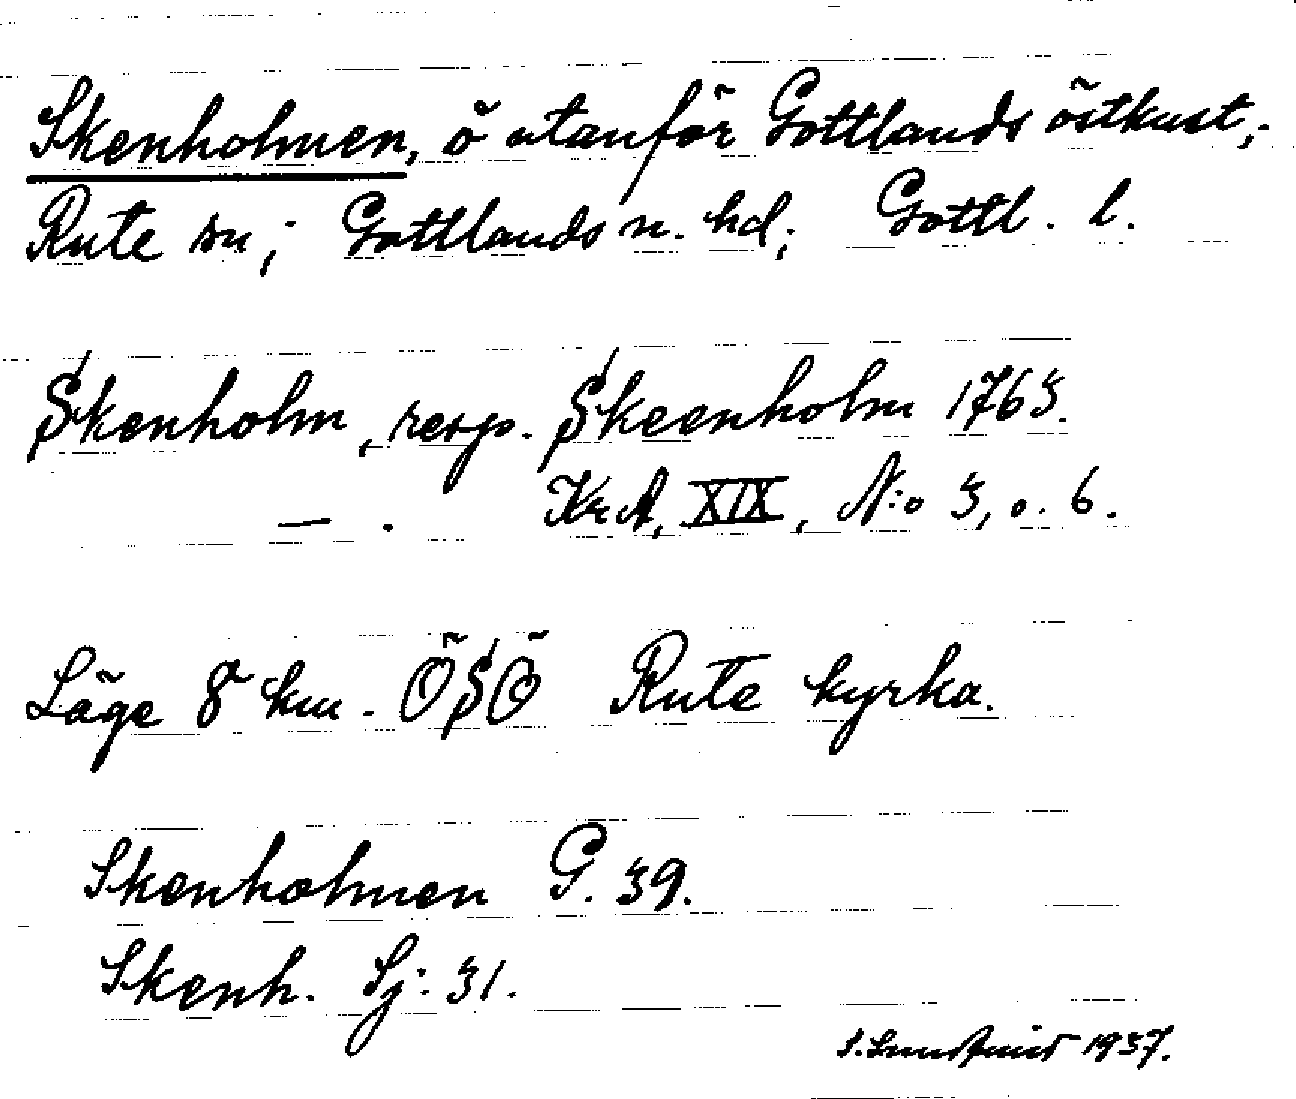 Skenholmen, ö utanför Gottlands östkust,
Rute sn; Gottlands n. hd; Gottl. l.
Skenholm, resp. Skeenholm 1763.
— . KrA, XIX, N:o 3, o. 6.
Läge 8 km. ÖSÖ Rute kyrka.
Skenholmen G. 39.
Skenh. Sj: 31.
1937.